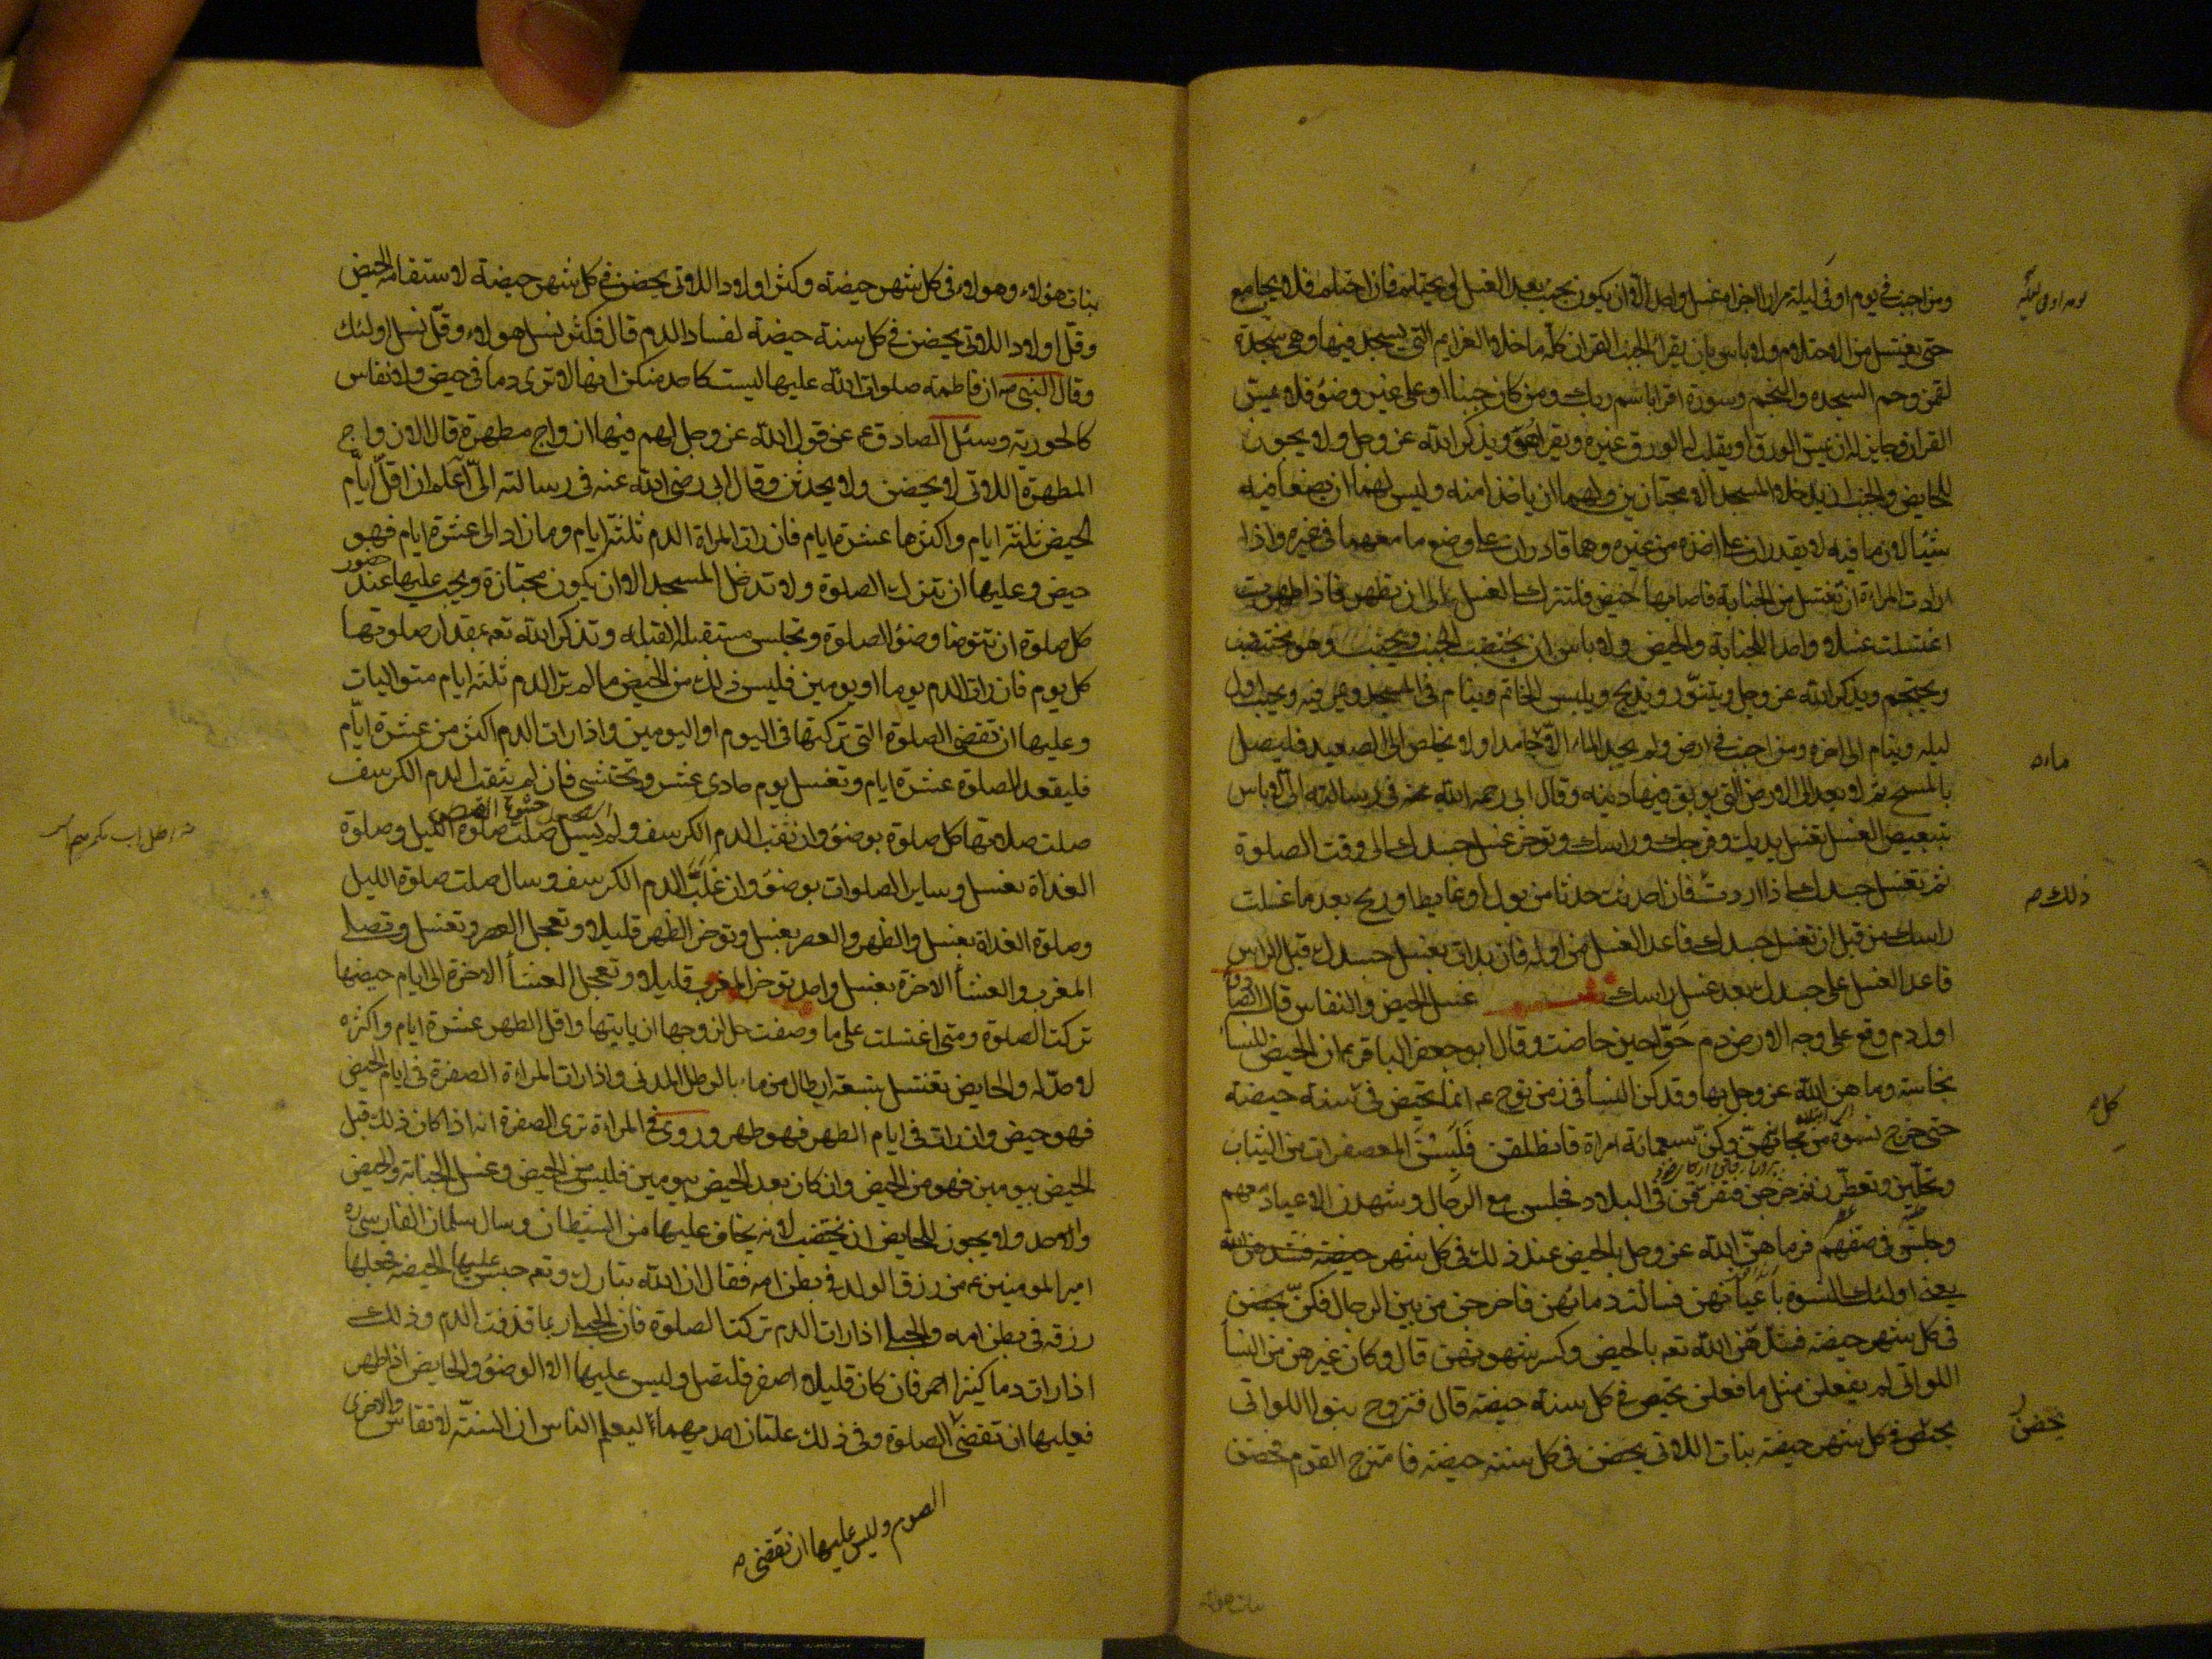 ومن اجنب في يوم او في ليلة مرارا اجزاه غسل واحد الا ان يكون يجنب بعد الغسل او يحتلم فان احتلم فلا يجامع
حتى يغتسل من الاحتلام ولا باس بان يقرا الجنب القران كله ما خلا العزايم التي يسجد فيها وهي سجدة
لقمن وحم السجده والنجم وسورة اقرا باسم ربك ومن كان جنبا او على غير وضوء فلا يمس
القران وجايز له ان يمس الورق او يقلب له الورق غيره ويقرا هو ويذكر الله عز وجل ولا يجوز
للحايض والجنب ان يدخلا المسجد الا مجتازين ولهما ان ياخذا منه وليس لهما ان يضعا فيه
شيئا لان ما فيه لا يقدران على اخذه من غيره وهما قادران على وضع ما معهما في غيره واذا
ارادت المراة ان تغتسل من الجنابة فاصابها حيض فلتترك الغسل الى ان تطهر فاذا طهرت
اغتسلت غسلا واحدا للجنابة والحيض ولا باس ان يختضب الجنب ويجنب وهو مختضب
ويحتجم ويذكر الله عز وجل ويتنور ويذبح ويلبس الخاتم وينام في المسجد ويمر فيه ويجنب اول
ليله وينام الى اخره ومن اجنب في ارض ولم يجد الماء الا جامدا ولا يخلص الى الصعيد فليصل
بالمسح ثم لا يعد الى الارض التي يوبق فيها دينه وقال ابي رحمه الله في رسالته الي لا باس
تبعيض الغسل تغسل يديك وفرجك وراسك وتوخر غسل جسدك الى وقت الصلوة
ثم تغسل جسدك اذا اردت فان احدثت حدثا من بول او غايط او ريح بعد ما غسلت
راسك من قبل ان تغسل جسدك فاعد الغسل من اوله فان بدات بغسل جسدك قبل الراس
فاعد الغسل على جسدك بعد غسل راسك غسل الحيض والنفاس قال الصادق
اول دم وقع على وجه الارض دم حوا حين حاضت وقال ابو جعفر الباقر ع ان الحيض للنسا
نجاسة رماهن الله عز وجل بها وقد كن النسا في زمن نوح ع انما تحيض في سنة حيضة
حتى خرج نسوة من مجانهن وكن سبعمائة امراة فانطلقن فلبسن المعصفرات من الثياب
وتحلين وتعطرن ثم خرجن فتفرقن في البلاد فجلسن مع الرجال وشهدن الاعياد معهم
وجلسن في صفهم فرماهن الله عز وجل بالحيض عند ذلك في كل شهر حيضة
يعني اولئك النسوة باعيانهن فسالت دمائهن فاخرجن من بين الرجال فكن يحضن
في كل شهر حيضة فشغلهن الله تعم بالحيض وكسر شهوتهن قال وكان غيرهن من النسا
اللواتي لم يفعلن مثل ما فعلن تحيض في كل سنة حيضة قال فتزوج بنوا اللواتي
يحضن في كل شهر حيضة بنات اللاتي يحضن في كل سنة حيضة فامتزج القوم فحضن
ذلك م
كل
يحضن
بنات هولاء وهولاء في كل شهر حيضة وكثر اولاد اللاتي يحضن في كل شهر حيضة لاستقامة الحيض
وقل اولاد اللاتي يحضن في كل سنة حيضة لفساد الدم قال فكثر نسل هولاء وقل نسل اولئك
وقال النبي ص ان فاطمة صلوات الله عليها ليست كاحد منكن انها لا ترى دما في حيض ولا نفاس
كالحورية وسئل الصادق ع عن قول الله عز وجل لهم فيها ازواج مطهرة قال الازواج
المطهرة اللاتي لا يحضن ولا يحدثن وقال ابي رضي الله عنه في رسالته الي اعلم ان اقل ايام
الحيض ثلثة ايام واكثرها عشرة ايام فان رات المراة الدم ثلثة ايام وما زاد الى عشرة ايام فهو
حيض وعليها ان تترك الصلوة ولا تدخل المسجد الا ان يكون مجتازة ويجب عليها عند حضور
كل صلوة ان تتوضا وضوء الصلوة وتجلس مستقبله القبله وتذكر الله تعم بمقدار صلوتها
كل يوم فان رات الدم يوما او يومين فليس ذلك من الحيض ما لم تر الدم ثلثة ايام متواليات
وعليها ان تقضي الصلوة التي تركتها في اليوم او اليومين واذا رات الدم اكثر من عشرة ايام
فليقعد للصلوة عشرة ايام وتغتسل يوم حادي عشر وتحتشي فان لم يثقب الدم الكرسف
صلت صلاتها كل صلوة بوضوء وان ثقب الدم الكرسف ولم يسل صلت صلوة الليل وصلوة
الغداة بغسل وساير الصلوات بوضوء وان غلب الدم الكرسف وسال صلت صلوة الليل
وصلوة الغداة بغسل والظهر والعصر بغسل وتوخر الظهر قليلا وتعجل العصر وتغتسل وتصلي
المغرب والعشا الاخرة بغسل واحد توخر المغرب قليلا وتعجل العشا الاخرة الى ايام حيضها
تركت الصلوة ومتى اغتسلت على ما وصفت حل لزوجها ان ياتيها واقل الطهر عشرة ايام واكثره
لا حد له والحايض تغتسل بتسعة ارطال من ماء بالرطل المدني واذا رات المراة الصفرة في ايام الحيض
فهو حيض وان رات في ايام الطهر فهو طهر وروي في المراة ترى الصفرة انه اذا كان ذلك قبل
الحيض بيومين فهو من الحيض وان كان بعد الحيض بيومين فليس من الحيض وغسل الجنابة والحيض
واحد ولا يجوز للحايض ان تختضب لانه يخاف عليها من الشيطان وسال سلمان الفارسي ره
امير المومنين ع من رزق الولد في بطن امه فقال ان الله تبارك وتعم حبس عليها الحيضة فجعلها
رزقه في بطن امه والحبلى اذا رات الدم تركت الصلوة فان الحبلى ربما قذفت الدم وذلك
اذا رات دما كثيرا احمر فان كان قليلا اصفر فلتصل وليس عليها الا الوضوء والحايض اذا طهرت
فعليها ان تقضي الصلوة وفي ذلك علتان احديهما ليعلم الناس ان السنة لا تقاس والاخرى
الصوم وليس عليها ان تقضي م